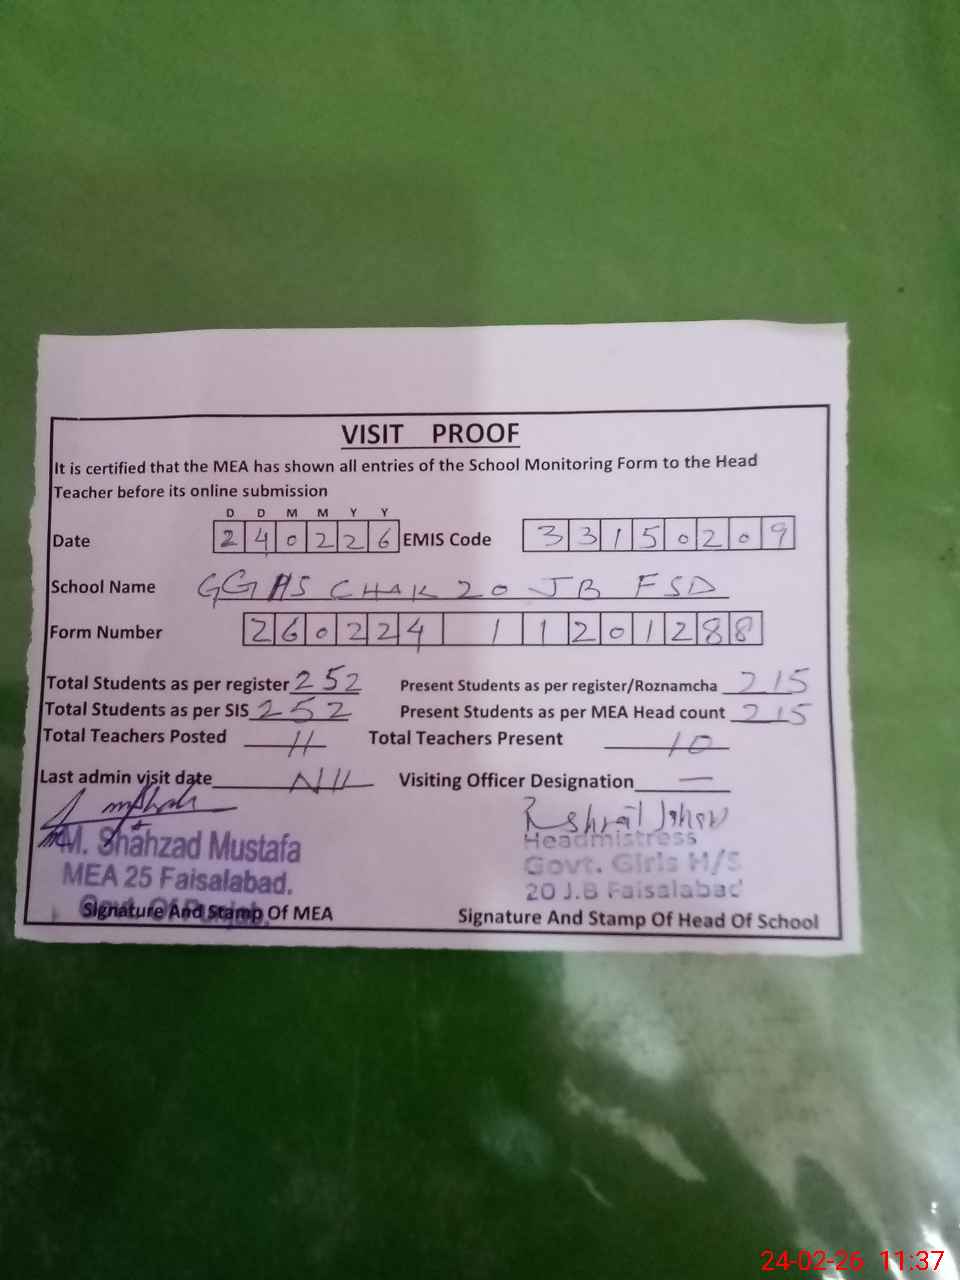 VISIT PROOF
It is certified that the MEA has shown all entries of the School Monitoring Form to the Head
Teacher before its online submission
D D M M Y Y
Date 240226 EMIS Code 33150209
School Name GGHS CHAK 20 JB FSD
Form Number 260224 1 1201288
Total Students as per register 252 Present Students as per register/Roznamcha 215
Total Students as per SIS 252 Present Students as per MEA Head count 215
Total Teachers Posted 11 Total Teachers Present 10
Last admin visit date Nil Visiting Officer Designation —
M. Shahzad Mustafa
MEA 25 Faisalabad.
Govt. Of Punjab.
Signature And Stamp Of MEA
Headmistress
Govt. Girls H/S
20 J.B Faisalabad
Signature And Stamp Of Head Of School
24-02-26 11:37